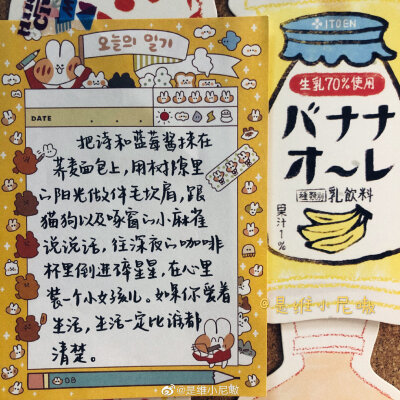 오늘의 일기
DATE
把诗和蓝莓酱抹在
荞麦面包上,用树隙里
的阳光做件毛坎肩,跟
猫狗以及啄窗的小麻雀
说说话,往深夜的咖啡
杯里倒进碎星星,在心里
装一个小女孩儿。如果你爱着
生活,生活一定比谁都
清楚。
ITOEN
生乳70%使用
バナナ
オ〜レ
種類別 乳飲料
果汁1%
©是维小尼嗷
@是维小尼嗷